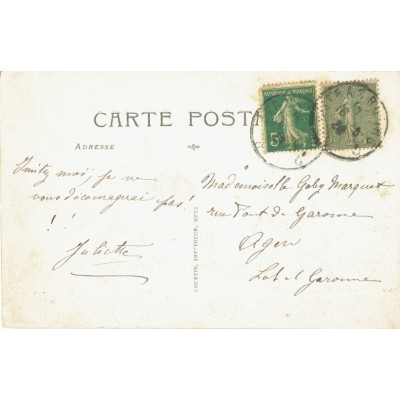 CARTE POST
ADRESSE
RÉPUBLIQUE FRANÇAISE
5
Imitez moi, je ne
vous décomagerai pas!
!!
Juliette
Mademoiselle Gaby Marquet
rue Pont de Garonne
Agen
Lot et Garonne